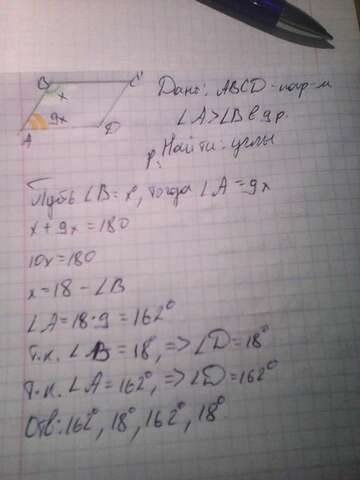 B C
x
9x
A D
Дано: ABCD - пар-м
∠A>∠B в 9 р.
Найти: углы
Р:
Пусть ∠B = x°, тогда ∠A = 9x
x + 9x = 180
10x = 180
x = 18 - ∠B
∠A = 18 · 9 = 162°
т.к. ∠B = 18°, => ∠D = 18°
т.к. ∠A = 162°, => ∠D = 162°
Отв: 162°, 18°, 162°, 18°